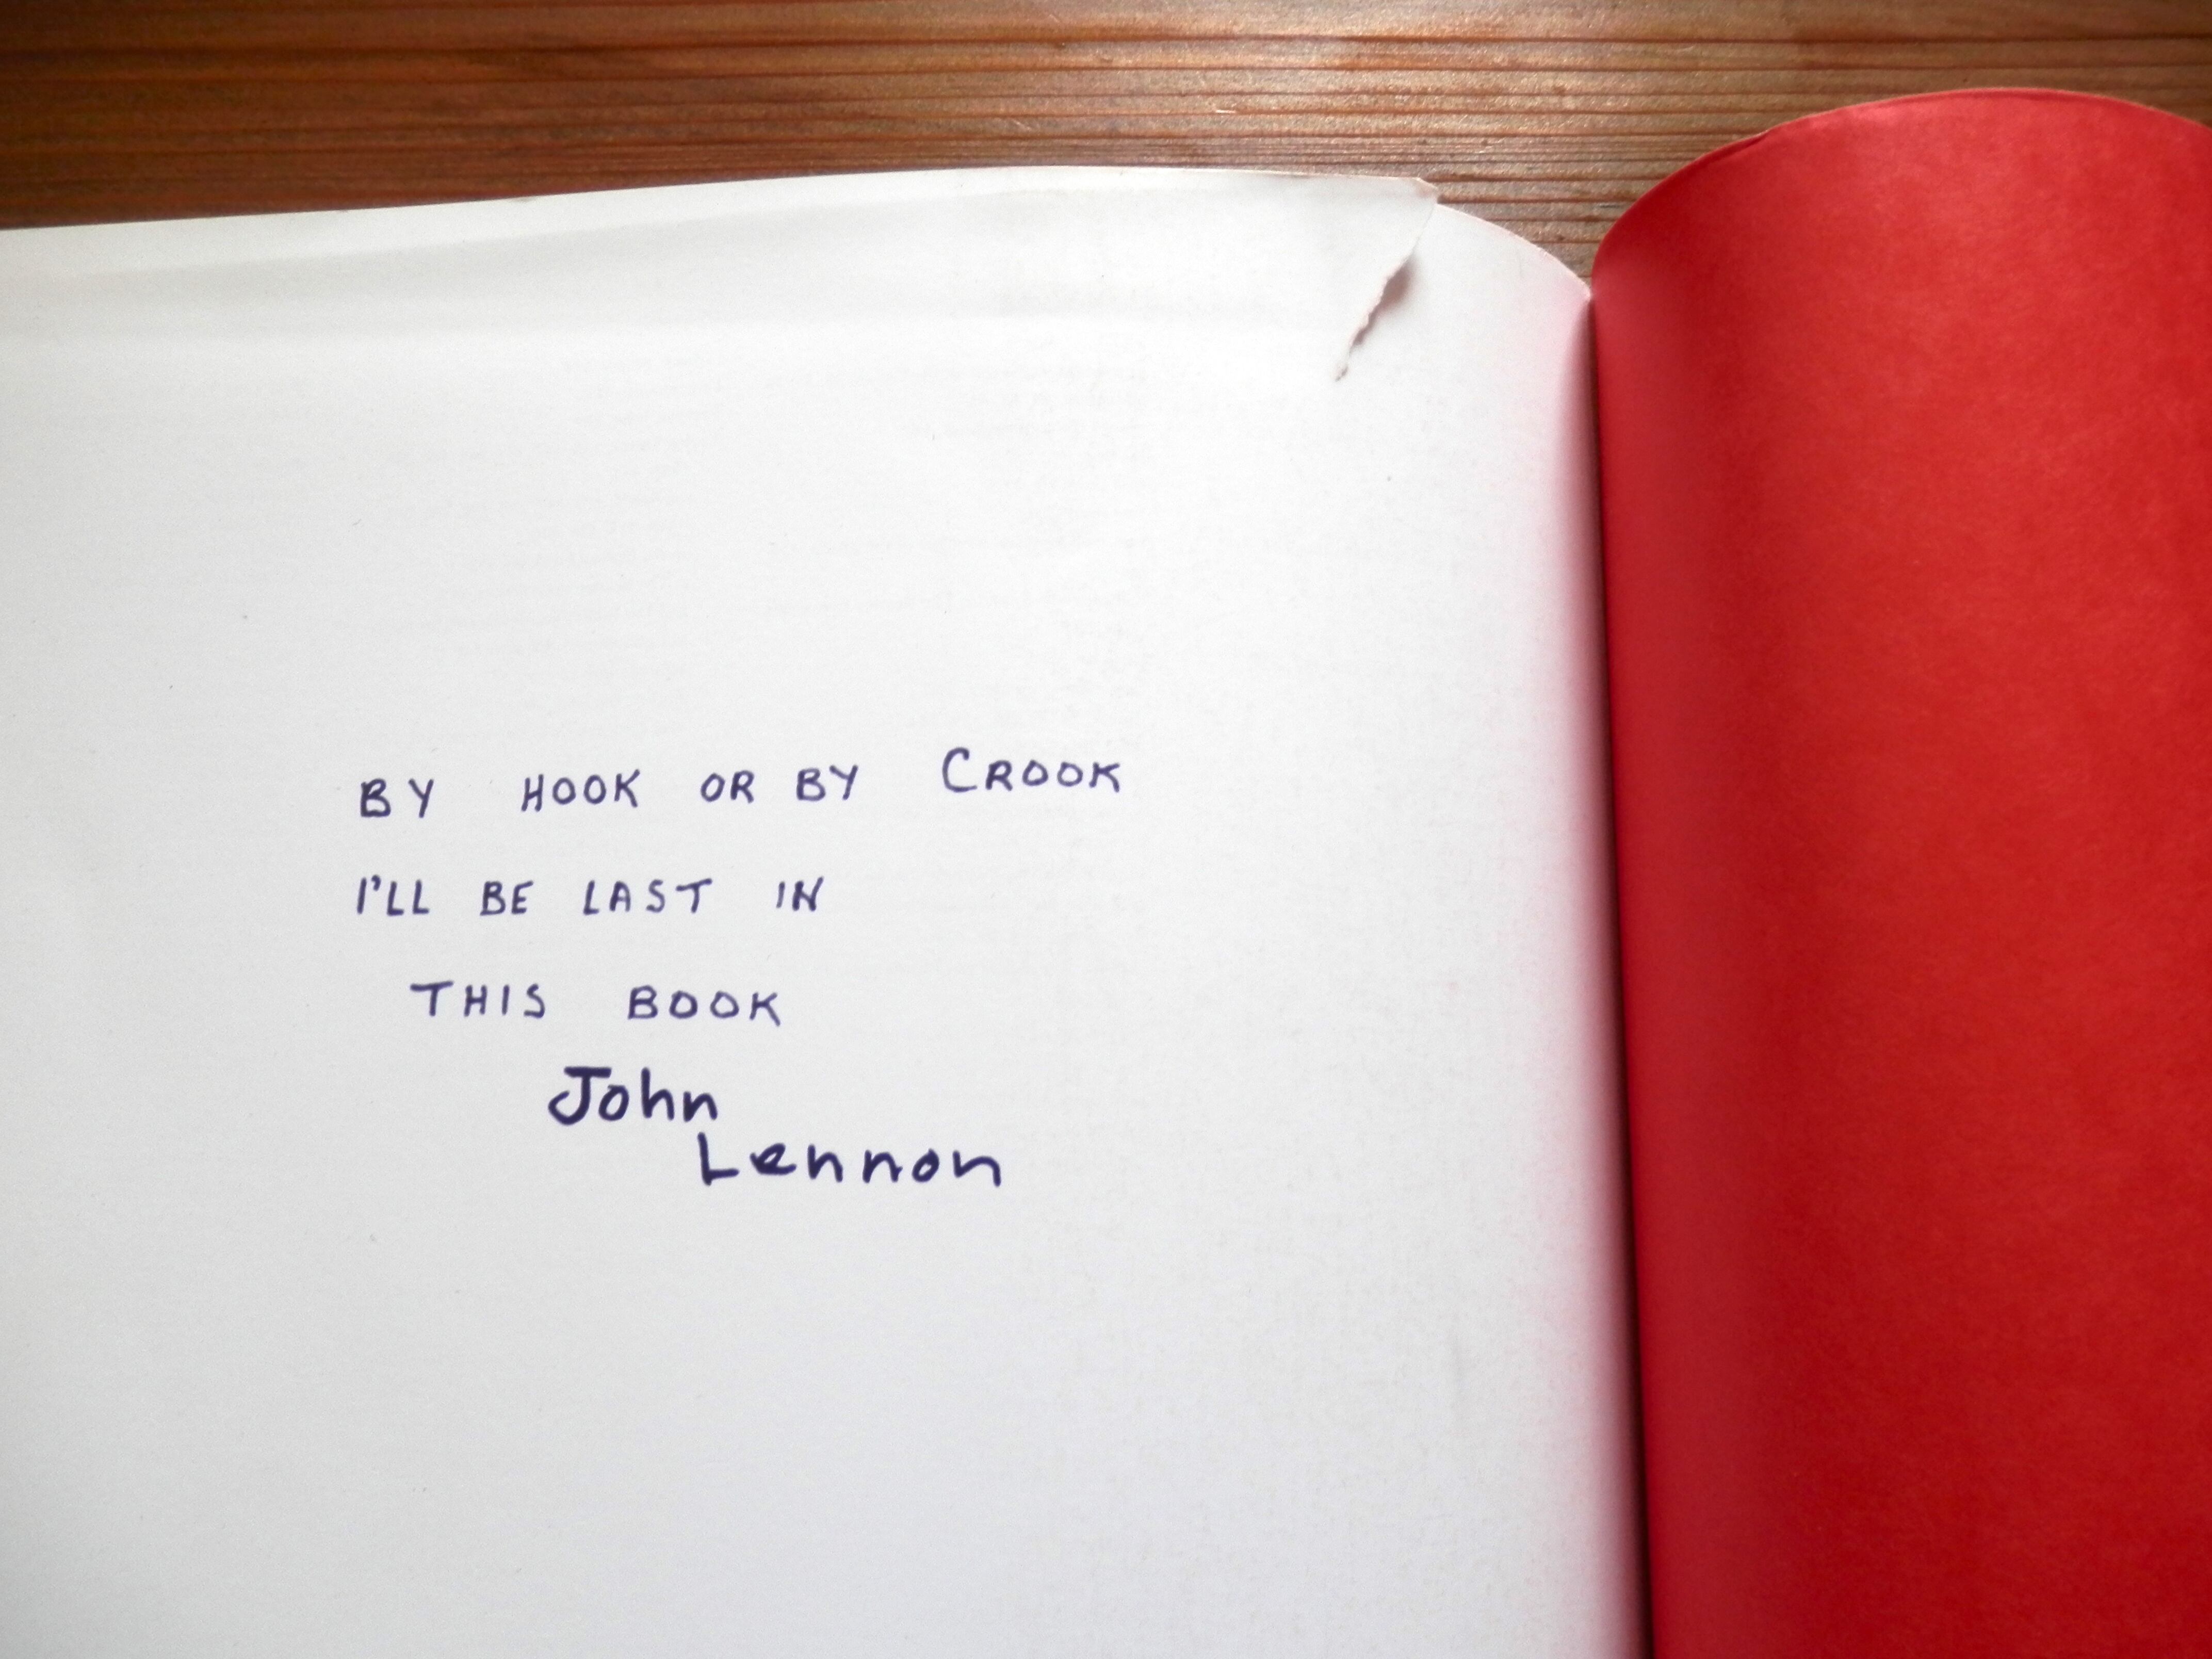 BY HOOK OR BY CROOK
I'LL BE LAST IN
THIS BOOK
John
Lennon